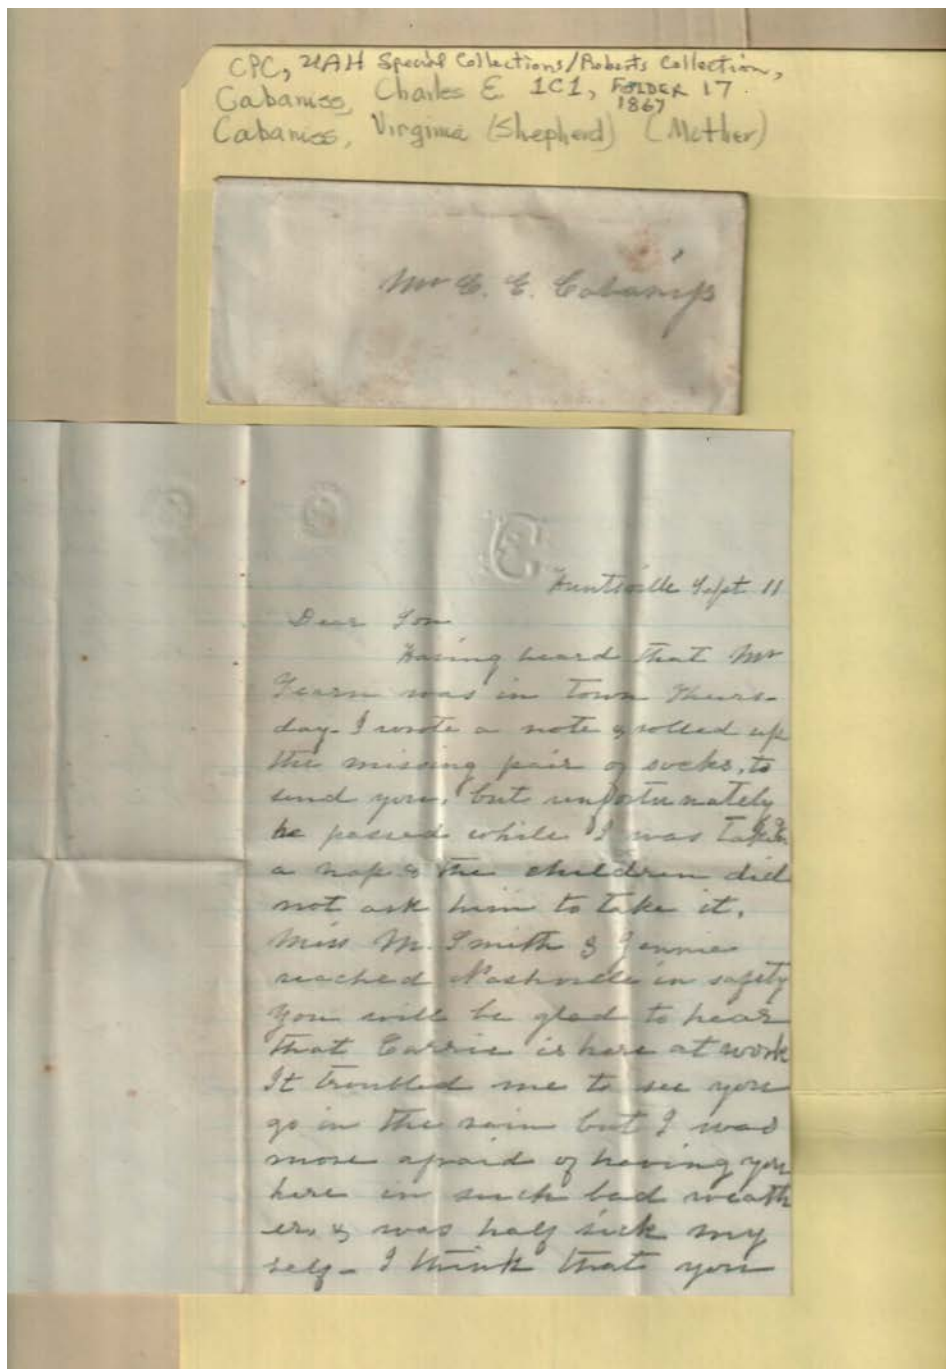 CPC, UAH Special Collections/Roberts Collection,
Cabaniss, Charles E 1C1, FOLDER 17.
1867
Cabaniss, Virginia (Shepherd) (Mother)
Mr C. E. Cabaniss
C
Huntsville Sept 11
Dear Son
Having heard that Mr
was in town Thurs-
day. I wrote a note & rolled up
the missing pair of socks, to
send you, but unfortunately
he passed while I was
a nap & the children did
not ask him to take it.
Miss M. Smith & Jennie
reached Nashville in safety
You will be glad to hear
that Carrie is here at work
It troubled me to see you
go in the rain but I was
more afraid of having you
here in such bad weath
er, & was half sick my
self - I think that you